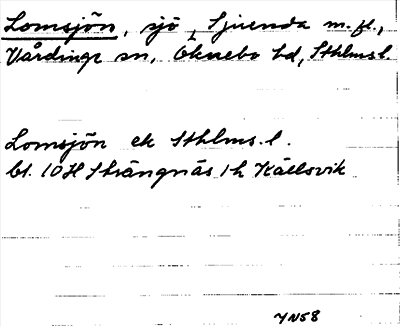 Lomsjön, sjö, Ljuenda m. fl.,
Vårdinge sn, Öknebo hd, Sthlms l.
Lomsjön ek Sthlms. l.
bl. 10H Strängnäs 1h Källsvik
YN58